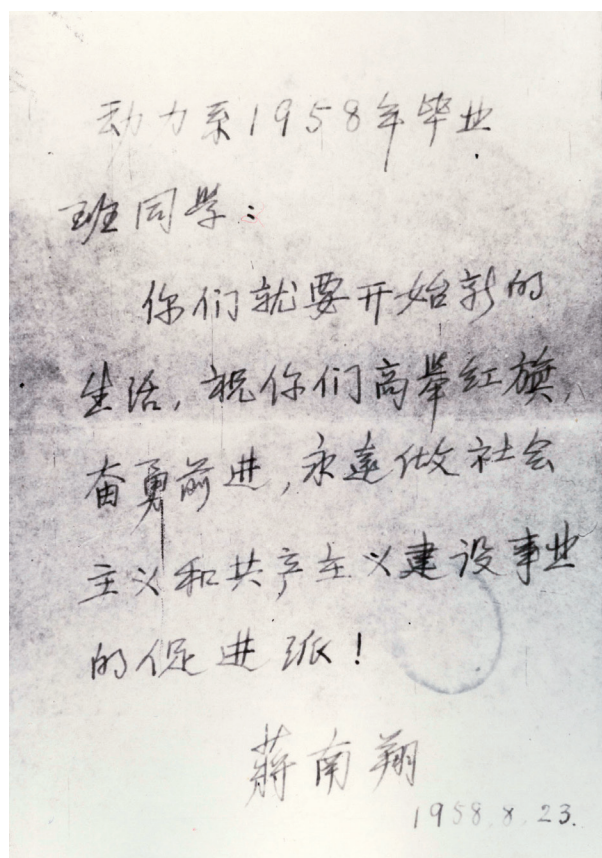 动力系1958年毕业
班同学：
你们就要开始新的
生活，祝你们高举红旗，
奋勇前进，永远做社会
主义和共产主义建设事业
的促进派！
蔣南翔
1958.8.23.